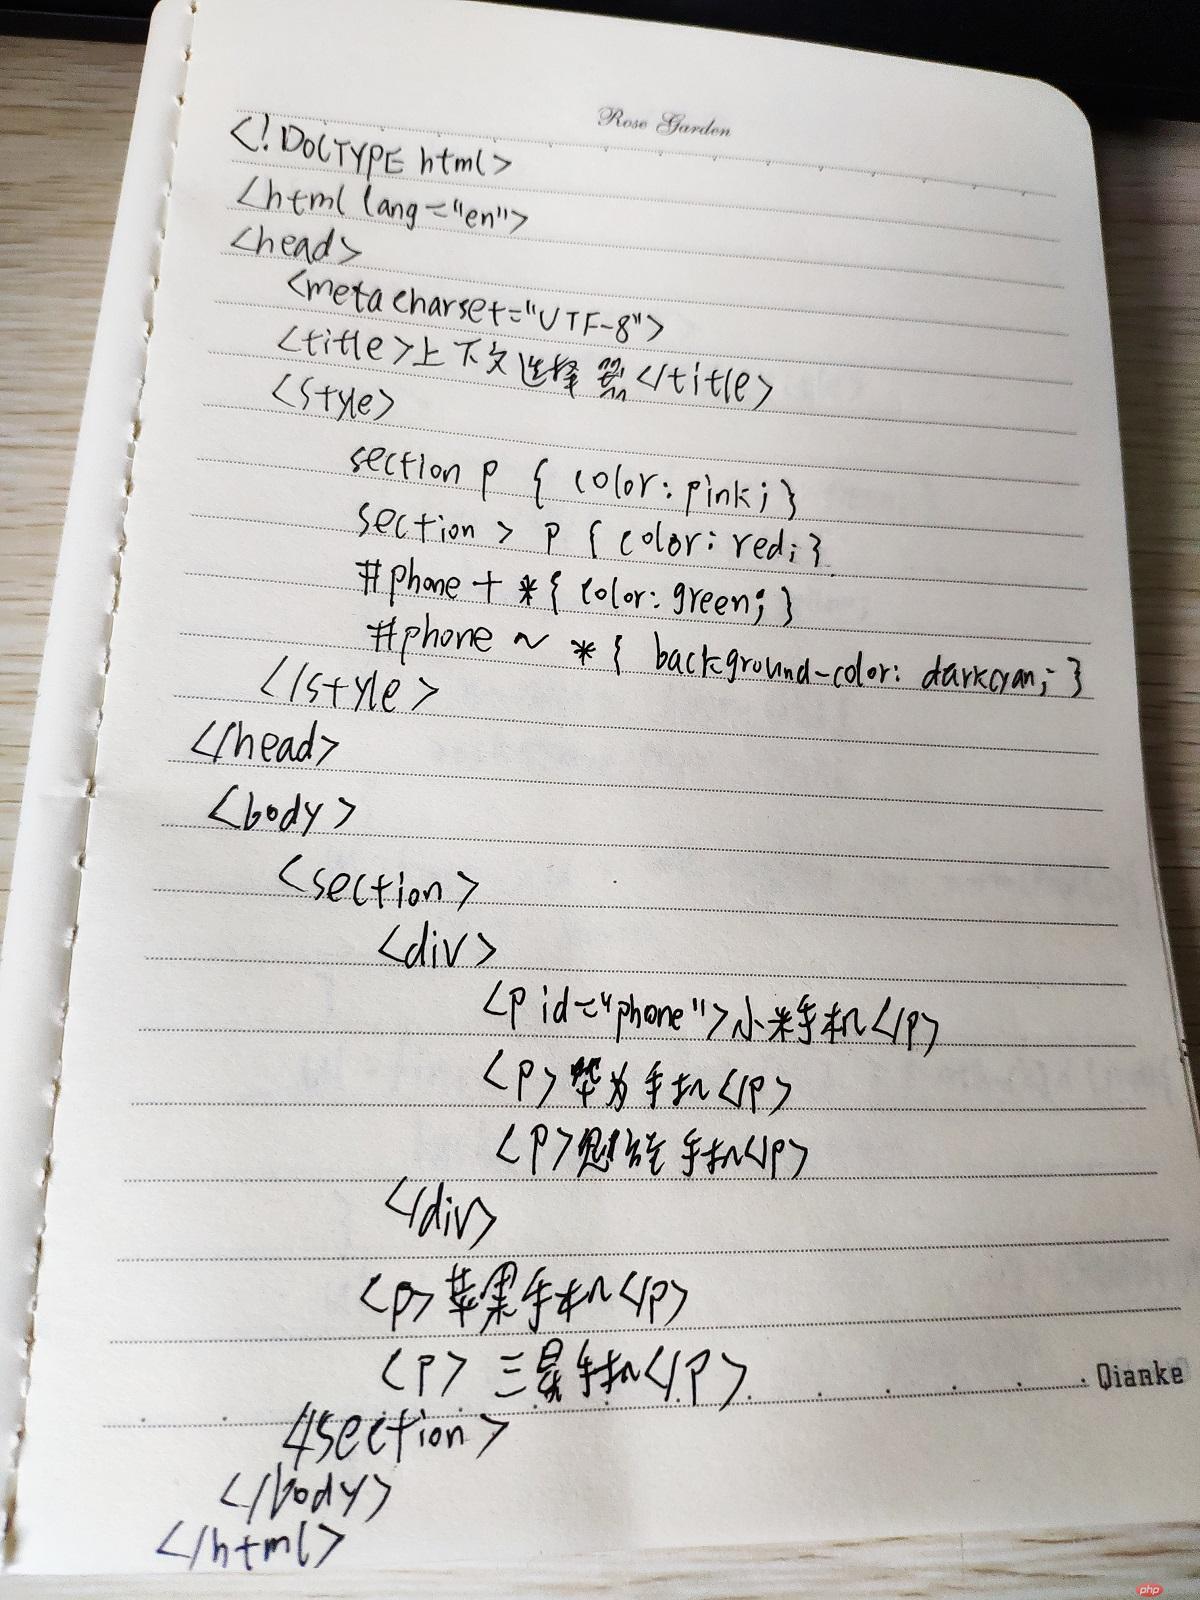 Rose Garden
<!DOCTYPE html>
<html lang="en">
<head>
<meta charset="UTF-8">
<title>上下文选择器</title>
<style>
section p { color: pink; }
section > p { color: red; }
#phone + * { color: green; }
#phone ~ * { background-color: darkcyan; }
</style>
</head>
<body>
<section>
<div>
<p id="phone">小米手机</p>
<p>华为手机</p>
<p>魅族手机</p>
</div>
<p>苹果手机</p>
<p>三星手机</p>
Qianke
</section>
</body>
</html>
php